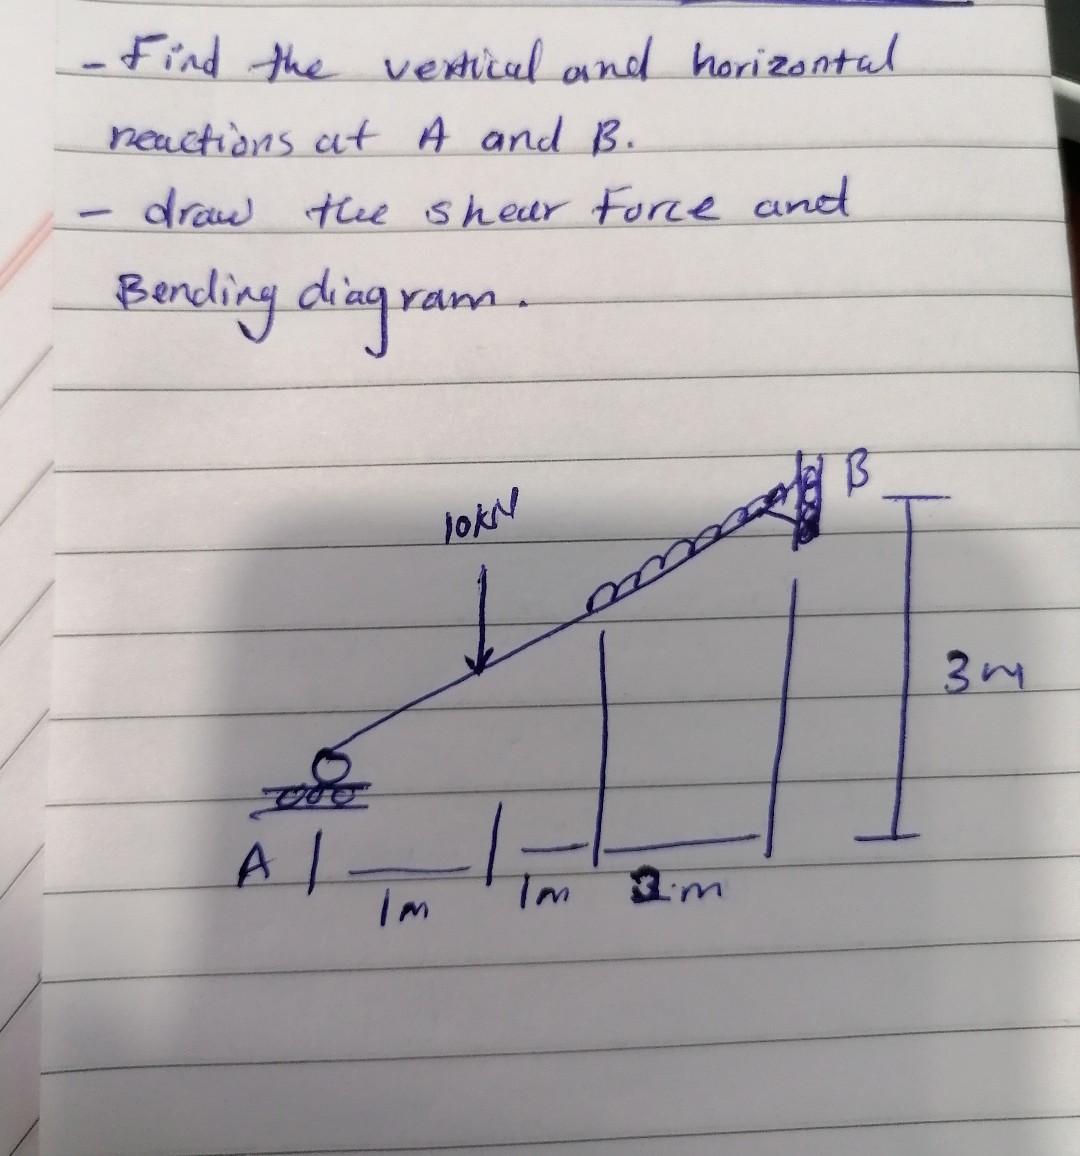 - Find the vertical and horizontal
reactions at A and B.
- draw the shear force and
Bending diagram.
B
10KN
3m
A
1m
1m
2m